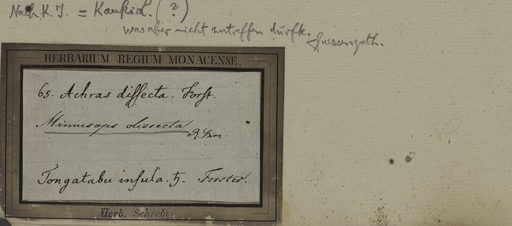 Nach K. J. = Kaukid. (?)
was aber nicht zutreffen dürfte.
HERBARIUM REGIUM MONACENSE.
65. Achras dissecta. Forst.
Mimusops dissecta R. Brn.
Tongatabu insula. ♄. Forster.
Herb. Schreber.